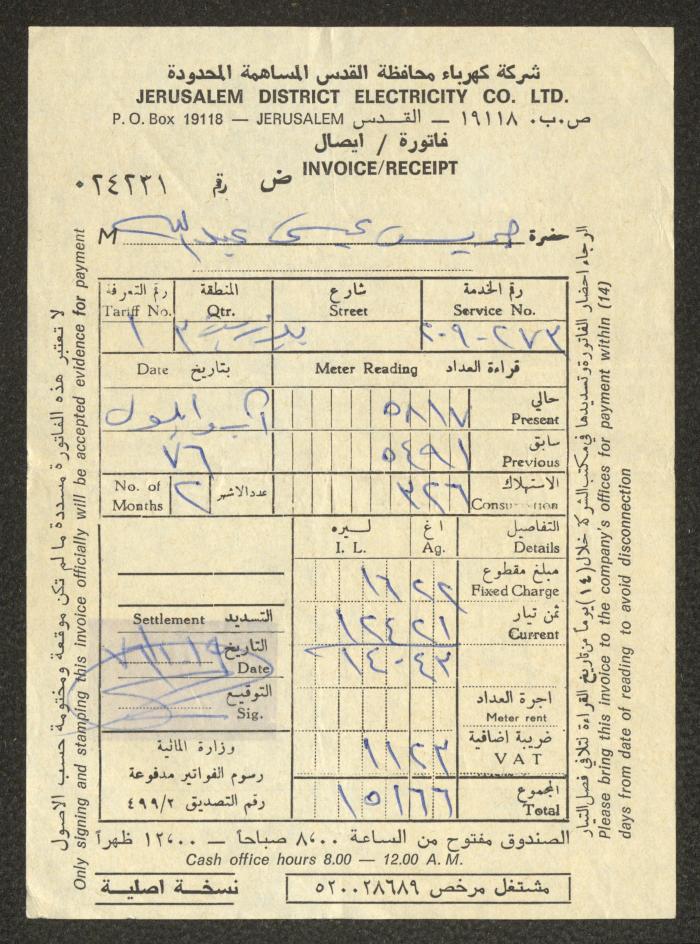 شركة كهرباء محافظة القدس المساهمة المحدودة
JERUSALEM DISTRICT ELECTRICITY CO. LTD.
P. O. Box 19118 — JERUSALEM ص.ب. ١٩١١٨ — القدس
فاتورة / ايصال
INVOICE/RECEIPT
ض رقم ٠٢٤٢٣١
حضرة جريس عيسى عبدالله M
رقم الخدمة شارع المنطقة رقم التعرفة
Service No. Street Qtr. Tariff No.
٢٠٩-٢٧٣ ٣ ١
قراءة العداد Meter Reading بتاريخ Date
حالي Present ٥٨١٧ آب وايلول
سابق Previous ٥٤٩١ ٧٦
الاستهلاك Consumption ٣٢٦ عدد الاشهر No. of Months ٢
التفاصيل Details اغ Ag. ليره I. L.
مبلغ مقطوع Fixed Charge ١٦ ٢٢
ثمن تيار Current ١٢٤ ٢١
١٤٠ ٤٣
اجرة العداد Meter rent
ضريبة اضافية VAT ١١ ٢٣
المجموع Total ١٥١ ٦٦
التسديد Settlement
التاريخ Date
التوقيع Sig.
وزارة المالية
رسوم الفواتير مدفوعة
رقم التصديق ٤٩٩/٢
الصندوق مفتوح من الساعة ٨،٠٠ صباحاً — ١٢،٠٠ ظهراً
Cash office hours 8.00 — 12.00 A. M.
مشتغل مرخص ٥٢٠٠٢٨٦٨٩
نسخة اصلية
الرجاء احضار الفاتورة وتسديدها في مكتب الشركة خلال (١٤) يوما من تاريخ القراءة لتلافي فصل التيار
Please bring this invoice to the company's offices for payment within (14)
days from date of reading to avoid disconnection
لا تعتبر هذه الفاتورة مسددة ما لم تكن موقعة ومختومة حسب الاصول
Only signing and stamping this invoice officially will be accepted evidence for payment